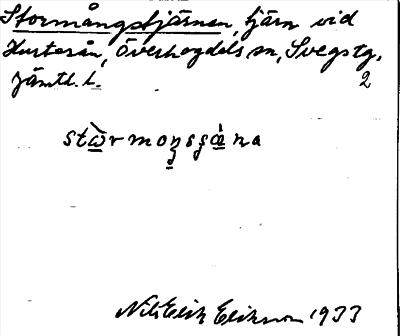 Stormångstjärnen, tjärn vid
Hustorån, Överhogdals sn, Svegs tg,
Jämtl. l. 2
stὼrmoŋsʂæ̀na
Nils Erik Eliksson 1933